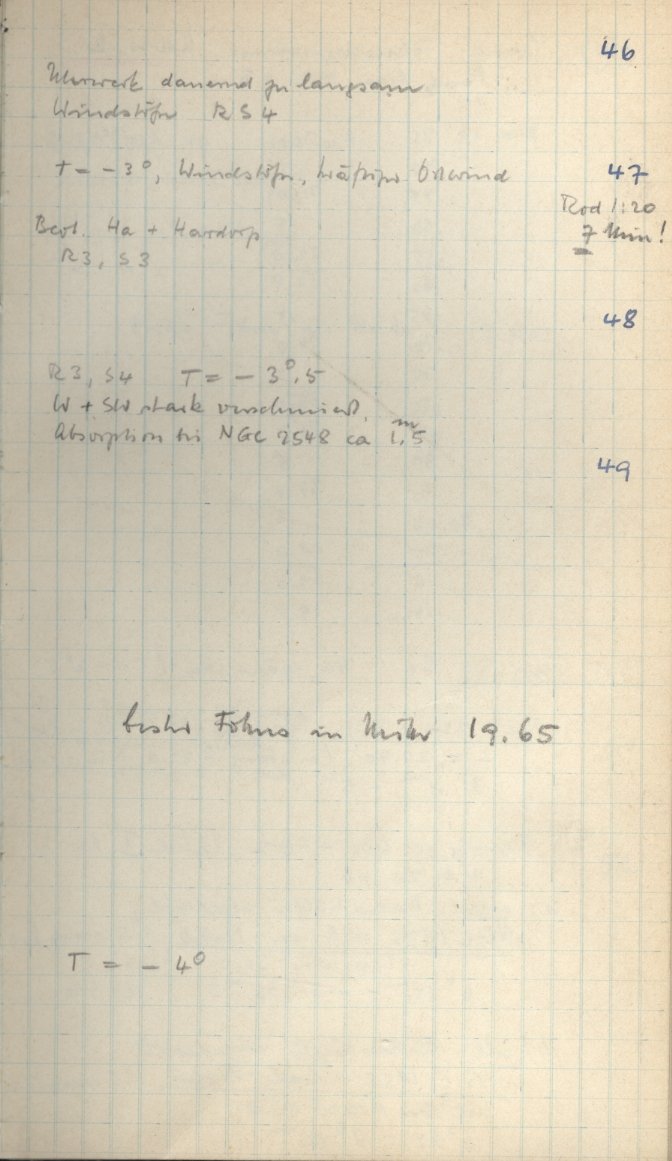 46
Uhrwerk dauernd zu langsam
Windstöße R S 4
T = - 3°, Windstöße, kräftiger Ostwind
47
Rod 1:20
7 Min!
Beob. Ha + Hardorp
R3, S3
48
R3, S4 T = - 3°.5
W + SW stark verschmiert.
Absorption bei NGC 2548 ca 1.ᵐ5
49
bester Fokus in Mitte 19.65
T = - 4°